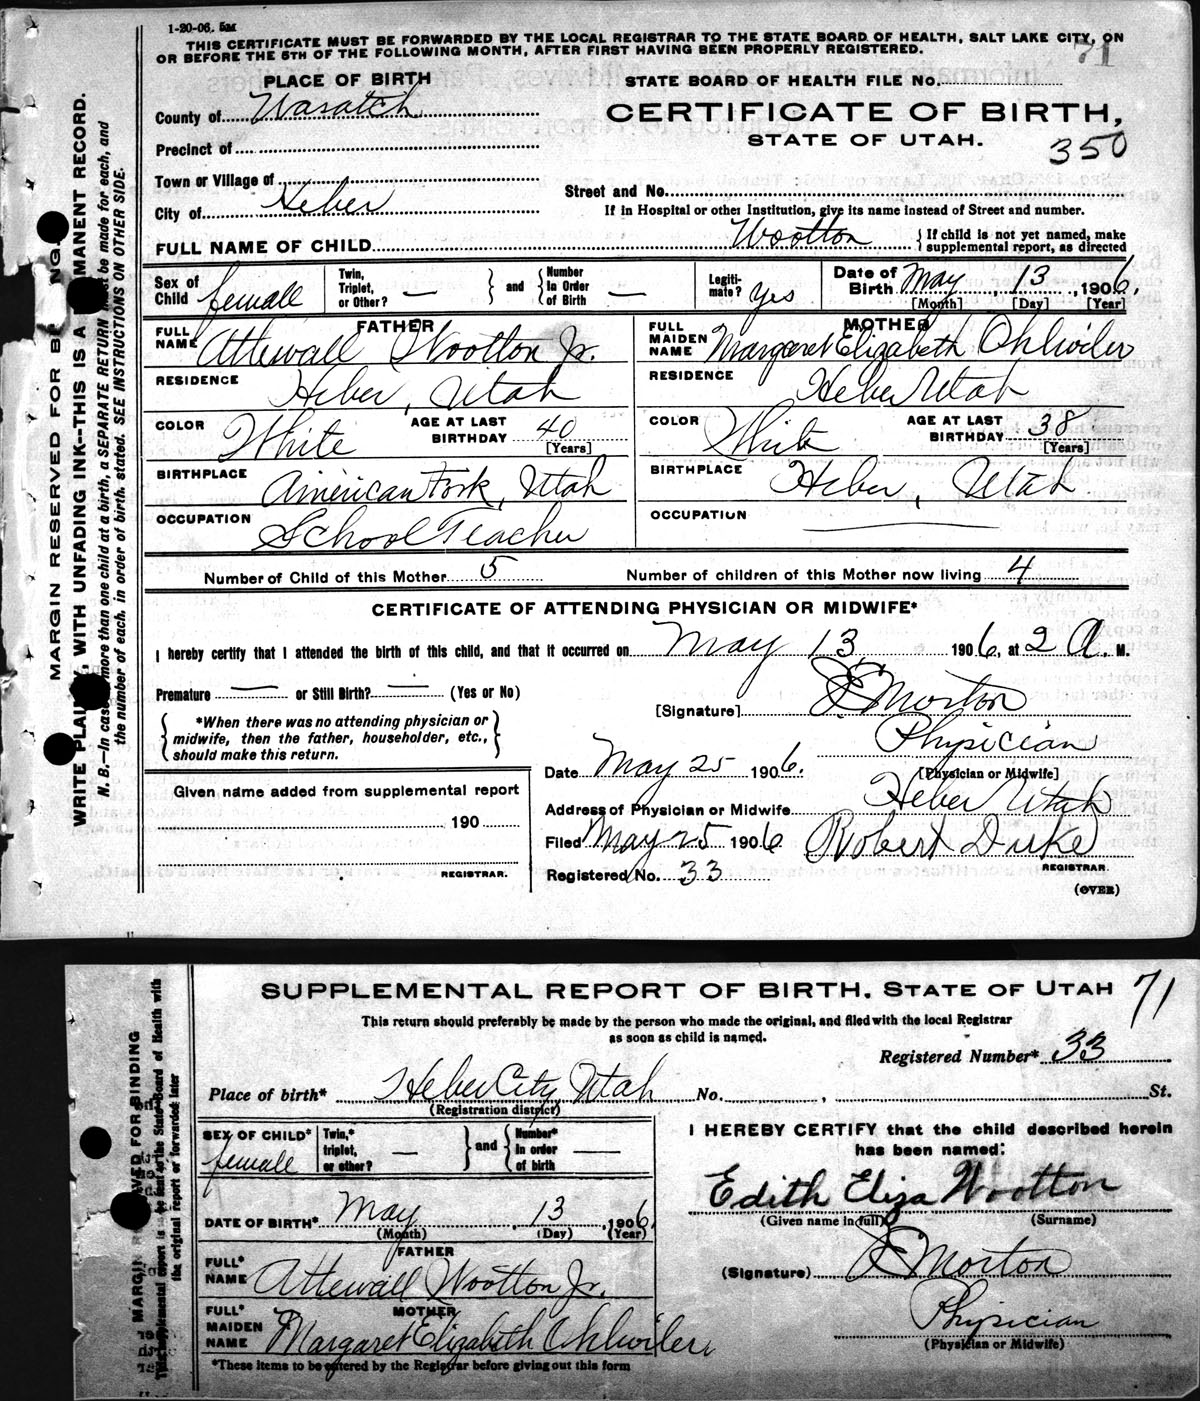 1-20-06. 5M
THIS CERTIFICATE MUST BE FORWARDED BY THE LOCAL REGISTRAR TO THE STATE BOARD OF HEALTH, SALT LAKE CITY, ON
OR BEFORE THE 5TH OF THE FOLLOWING MONTH, AFTER FIRST HAVING BEEN PROPERLY REGISTERED.
71
PLACE OF BIRTH
STATE BOARD OF HEALTH FILE No.
County of Wasatch
CERTIFICATE OF BIRTH,
STATE OF UTAH.
350
Precinct of
Town or Village of
Street and No.
City of Heber
If in Hospital or other Institution, give its name instead of Street and number.
FULL NAME OF CHILD Wootton { If child is not yet named, make
supplemental report, as directed
Sex of Child female
Twin, Triplet, or Other? —
and
Number In Order of Birth —
Legitimate? yes
Date of Birth May 13, 1906.
[Month] [Day] [Year]
FATHER
FULL NAME Attewall Wootton Jr.
MOTHER
FULL MAIDEN NAME Margaret Elizabeth Ohlwiler
RESIDENCE Heber, Utah
RESIDENCE Heber Utah
COLOR White AGE AT LAST BIRTHDAY 40 [Years]
COLOR White AGE AT LAST BIRTHDAY 38 [Years]
BIRTHPLACE American Fork, Utah
BIRTHPLACE Heber, Utah
OCCUPATION School Teacher
OCCUPATION
Number of Child of this Mother 5 Number of children of this Mother now living 4
CERTIFICATE OF ATTENDING PHYSICIAN OR MIDWIFE*
I hereby certify that I attended the birth of this child, and that it occurred on May 13 1906, at 2 A. M.
Premature — or Still Birth? — (Yes or No)
[Signature] Morton
*When there was no attending physician or
midwife, then the father, householder, etc.,
should make this return.
Physician
[Physician or Midwife]
Date May 25 1906.
Address of Physician or Midwife Heber Utah
Given name added from supplemental report
190
REGISTRAR.
Filed May 25 1906 Robert Duke
REGISTRAR.
Registered No. 33
(OVER)
MARGIN RESERVED FOR
WRITE WITH UNFADING INK--THIS IS A MANENT RECORD.
N. B.—In case more than one child at a birth, a SEPARATE RETURN must be made for each, and
the number of each, in order of birth, stated. SEE INSTRUCTIONS ON OTHER SIDE.
SUPPLEMENTAL REPORT OF BIRTH. STATE OF UTAH 71
This return should preferably be made by the person who made the original, and filed with the local Registrar
as soon as child is named.
Registered Number* 33
Place of birth* Heber City Utah No. , St.
(Registration district)
SEX OF CHILD* female
Twin,* triplet, or other? —
and
Number* In order of birth —
I HEREBY CERTIFY that the child described herein
has been named:
Edith Eliza Wootton
(Given name in full) (Surname)
DATE OF BIRTH* May 13, 1906
(Month) (Day) (Year)
FATHER
FULL* NAME Attewall Wootton Jr.
(Signature) Morton
MOTHER
FULL* MAIDEN NAME Margaret Elizabeth Ohlwiler
Physician
(Physician or Midwife)
*These items to be entered by the Registrar before giving out this form